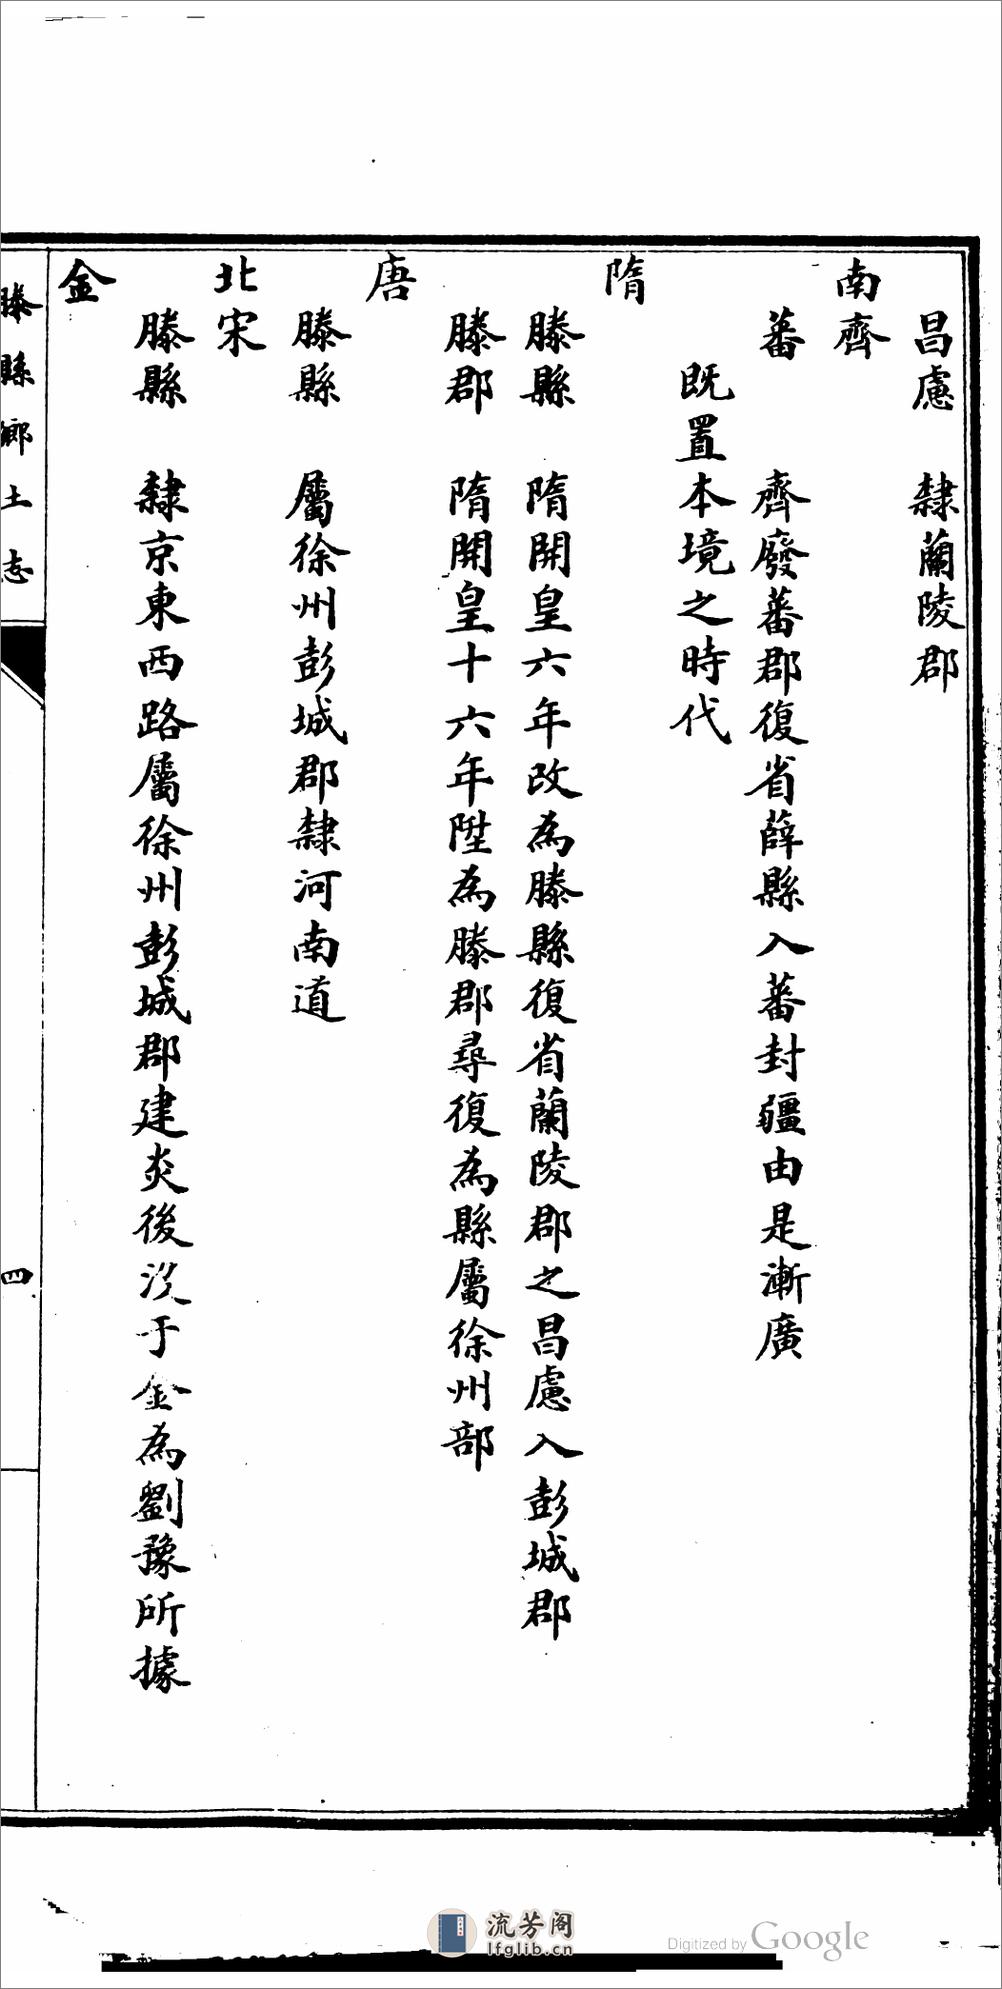 昌慮　隸蘭陵郡
南齊
蕃　齊廢蕃郡復省薛縣入蕃封疆由是漸廣
既置本境之時代
隋
滕縣　隋開皇六年改為滕縣復省蘭陵郡之昌慮入彭城郡
滕郡　隋開皇十六年陞為滕郡尋復為縣屬徐州部
唐
滕縣　屬徐州彭城郡隸河南道
北宋
滕縣　隸京東西路屬徐州彭城郡建炎後沒于金為劉豫所據
金
滕縣鄉土志
四
流芳阁
lfglib.cn
Digitized by Google